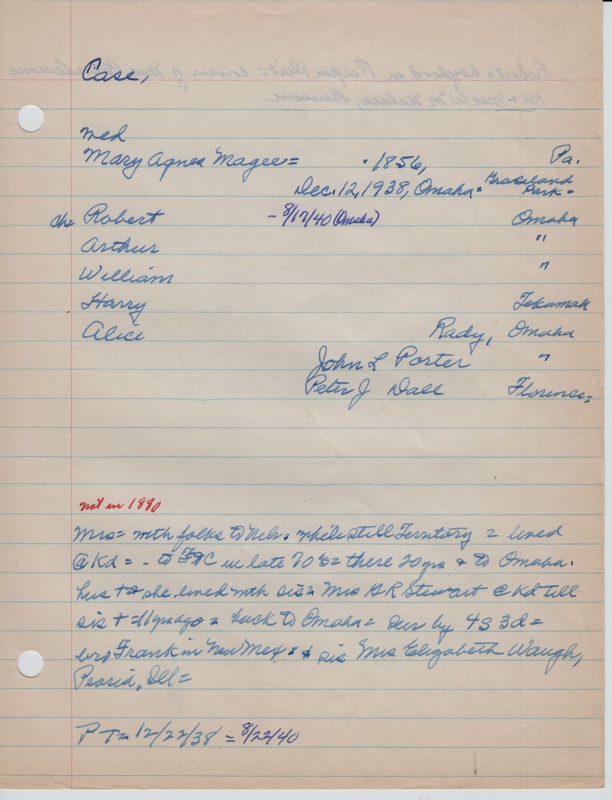 Case,
wed
Mary Agnes Magee = . 1856, Pa.
Dec. 12, 1938, Omaha = Graceland Park =
ch Robert - 8/17/40 (Omaha) Omaha
Arthur "
William "
Harry Tekamah
Alice Rady, Omaha
John L Porter "
Peter J Dall Florence =
not in 1880
Mrs = with folks to Neb. while still Territory = lived
@ Kd = - to in late 70's = there 20 yrs + to Omaha.
hus + she lived with sis = Mrs A R Stewart @ Kd till
sis + = 11 yrs ago = back to Omaha = sur by 4 S 3 d =
bro Frank in New Mex = & sis Mrs Elizabeth Waugh,
Peoria, Ill =
P T = 12/22/38 = 8/22/40